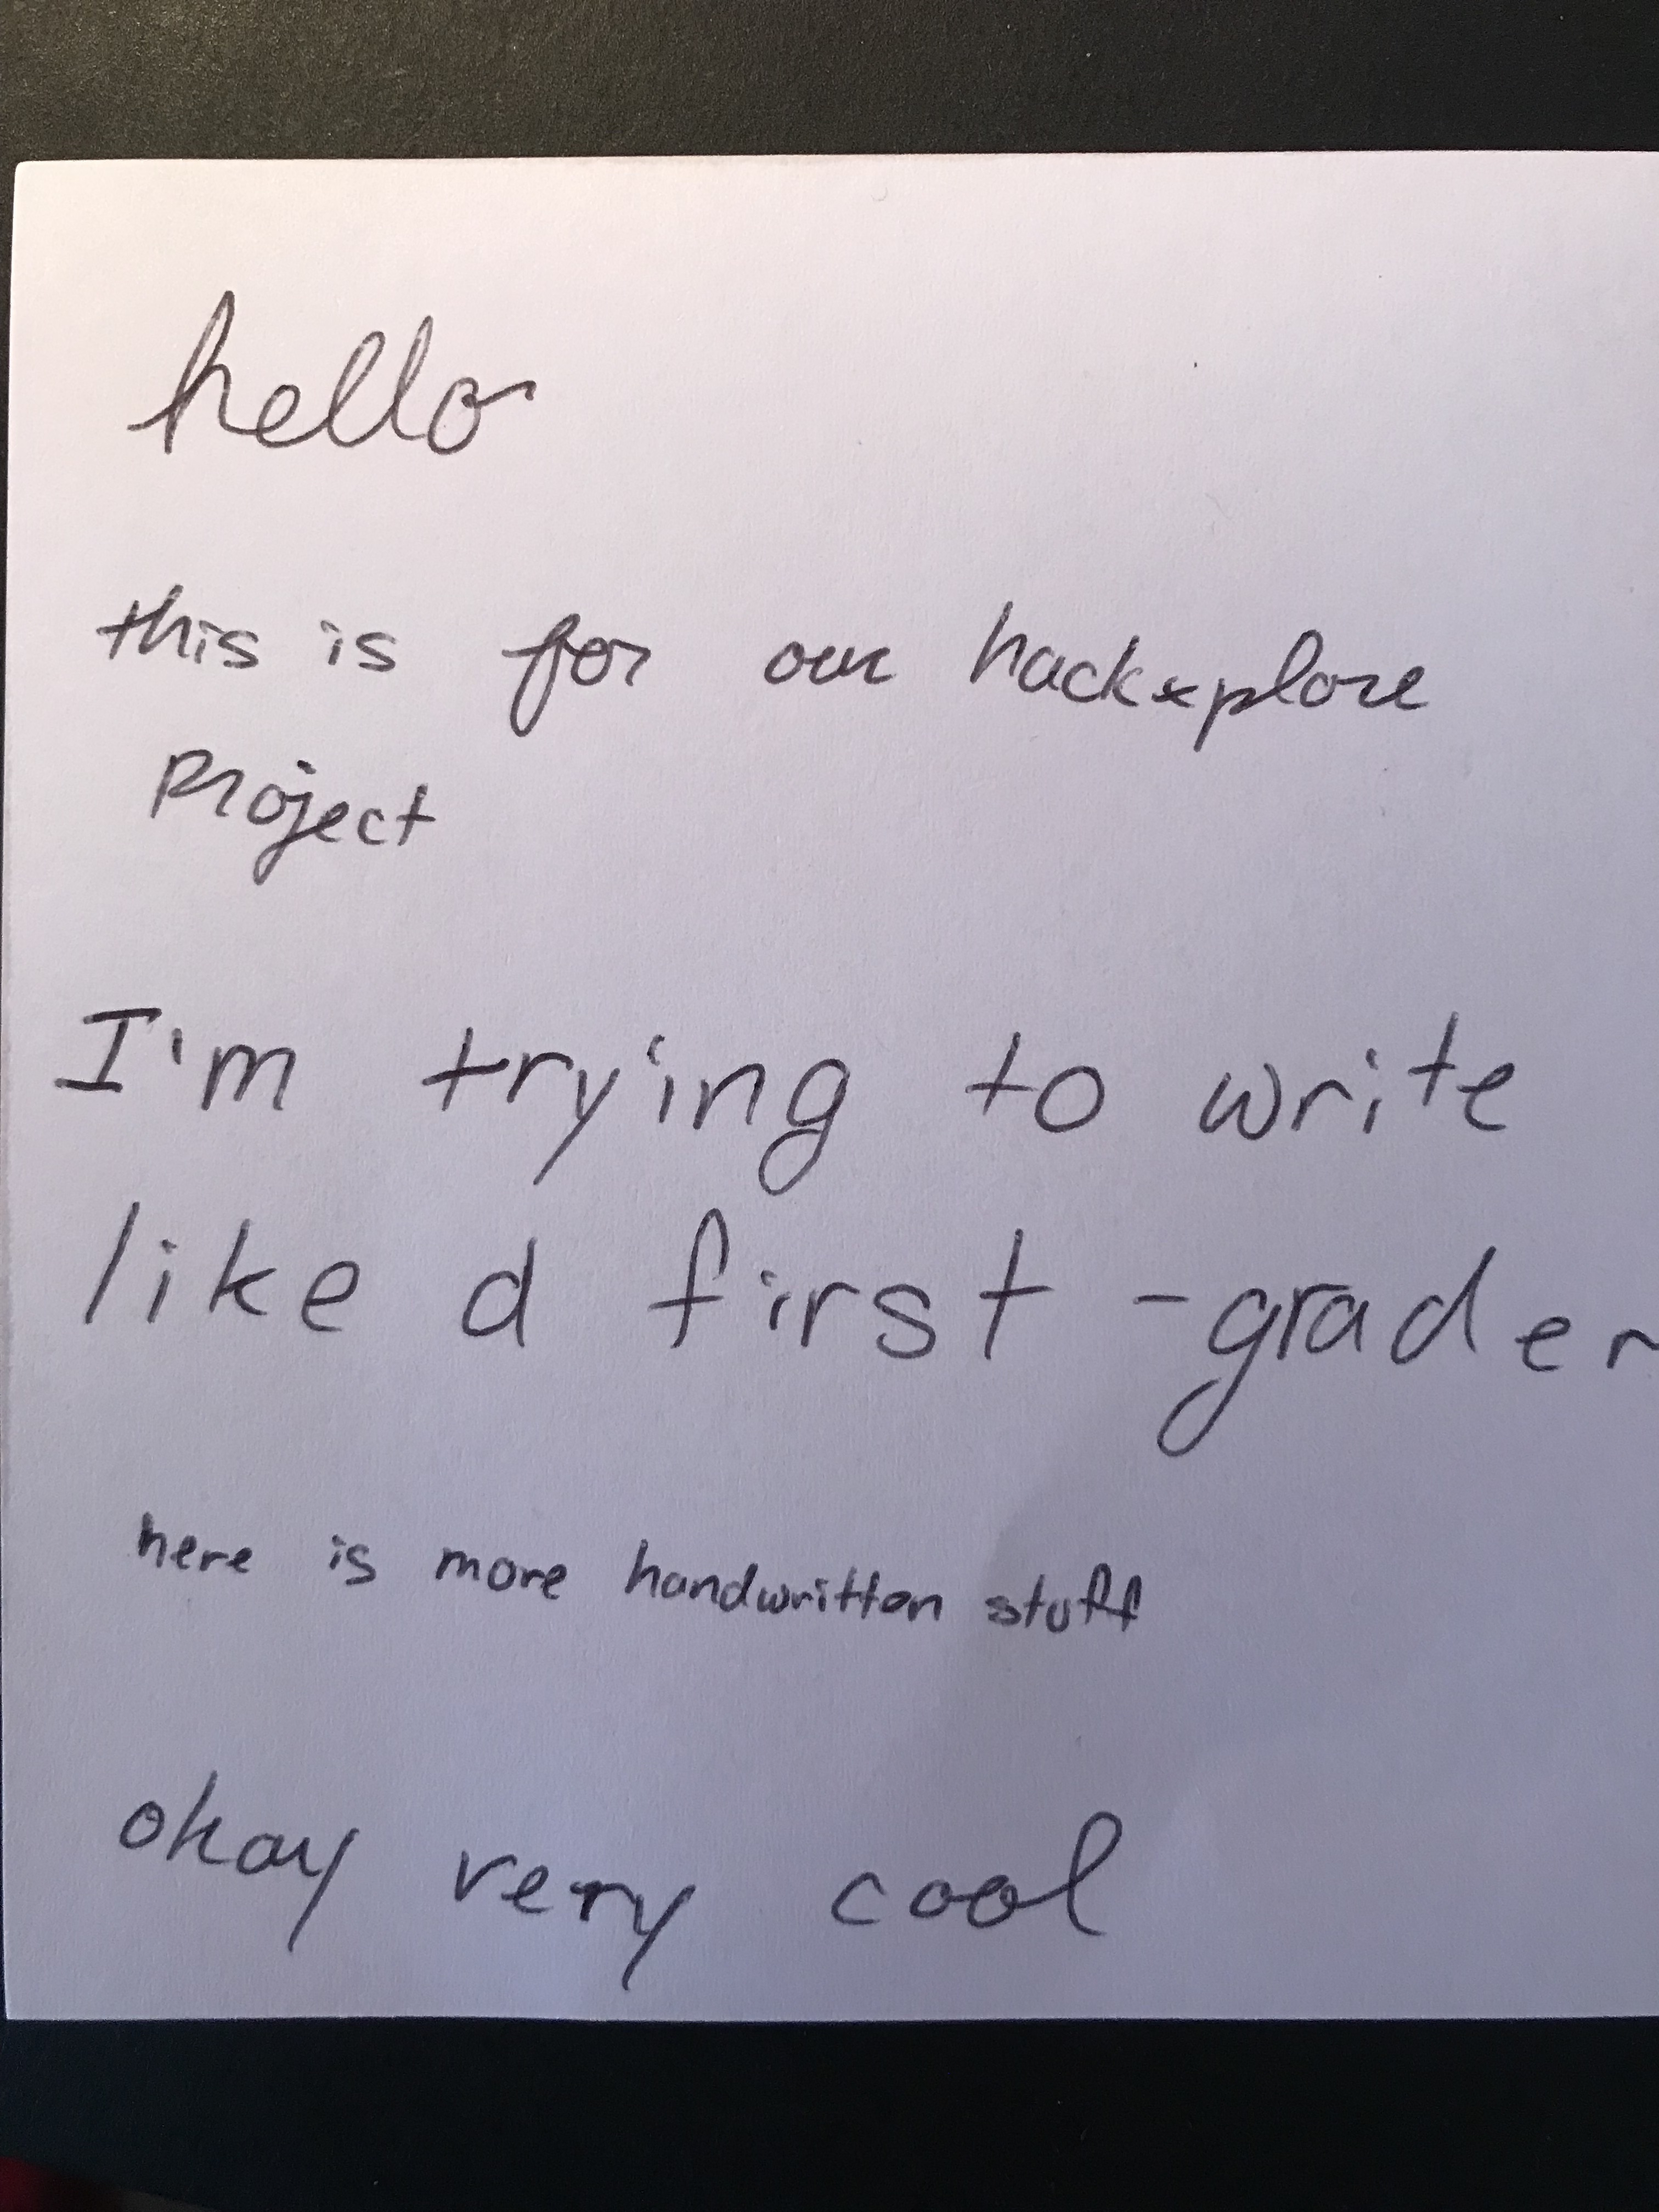 hello
this is for our hackxplore
project
I'm trying to write
like a first-grader
here is more handwritten stuff
okay very cool